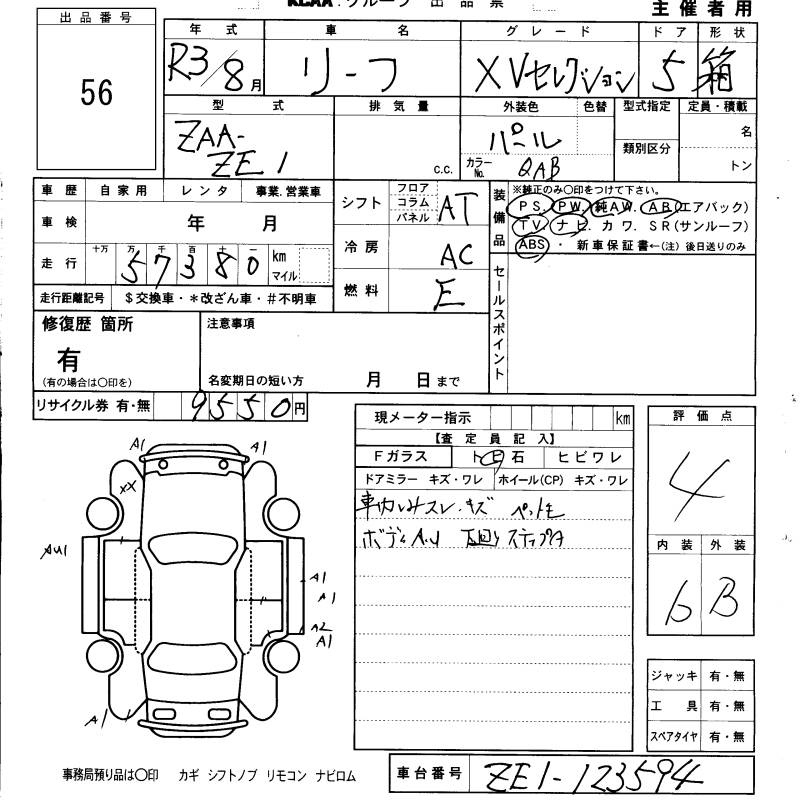 KCAA グループ 出品票
主催者用
出品番号
56
年式 車名 グレード ドア 形状
R3/8月 リーフ XVセレクション 5 箱
型式 排気量 外装色 色替 型式指定 定員・積載
ZAA-ZE1 c.c. パール カラーNo. QAB 類別区分 名 トン
車歴 自家用 レンタ 事業.営業車
車検 年 月
走行 十万 万 千 百 十 一 km マイル
57380
走行距離記号 $交換車・*改ざん車・#不明車
シフト フロア コラム パネル AT
冷房 AC
燃料 E
装備品 ※純正のみ〇印をつけて下さい。
PS. PW. 純AW. AB(エアバック)
TV. ナビ. カワ. SR(サンルーフ)
ABS ・ 新車保証書←(注) 後日送りのみ
セールスポイント
修復歴 箇所
有
(有の場合は〇印を)
注意事項
名変期日の短い方 月 日まで
リサイクル券 有・無 9550円
現メーター指示 km
【査定員記入】
Fガラス ト石 ヒビワレ
ドアミラー キズ・ワレ ホイール(CP) キズ・ワレ
スレ・キズ
ボディ 下回り
評価点
4
内装 外装
6 B
A1 A1
XX
AU1
A1
A1
A2
A1
A1
ジャッキ 有・無
工具 有・無
スペアタイヤ 有・無
事務局預り品は〇印 カギ シフトノブ リモコン ナビロム
車台番号 ZE1-123594